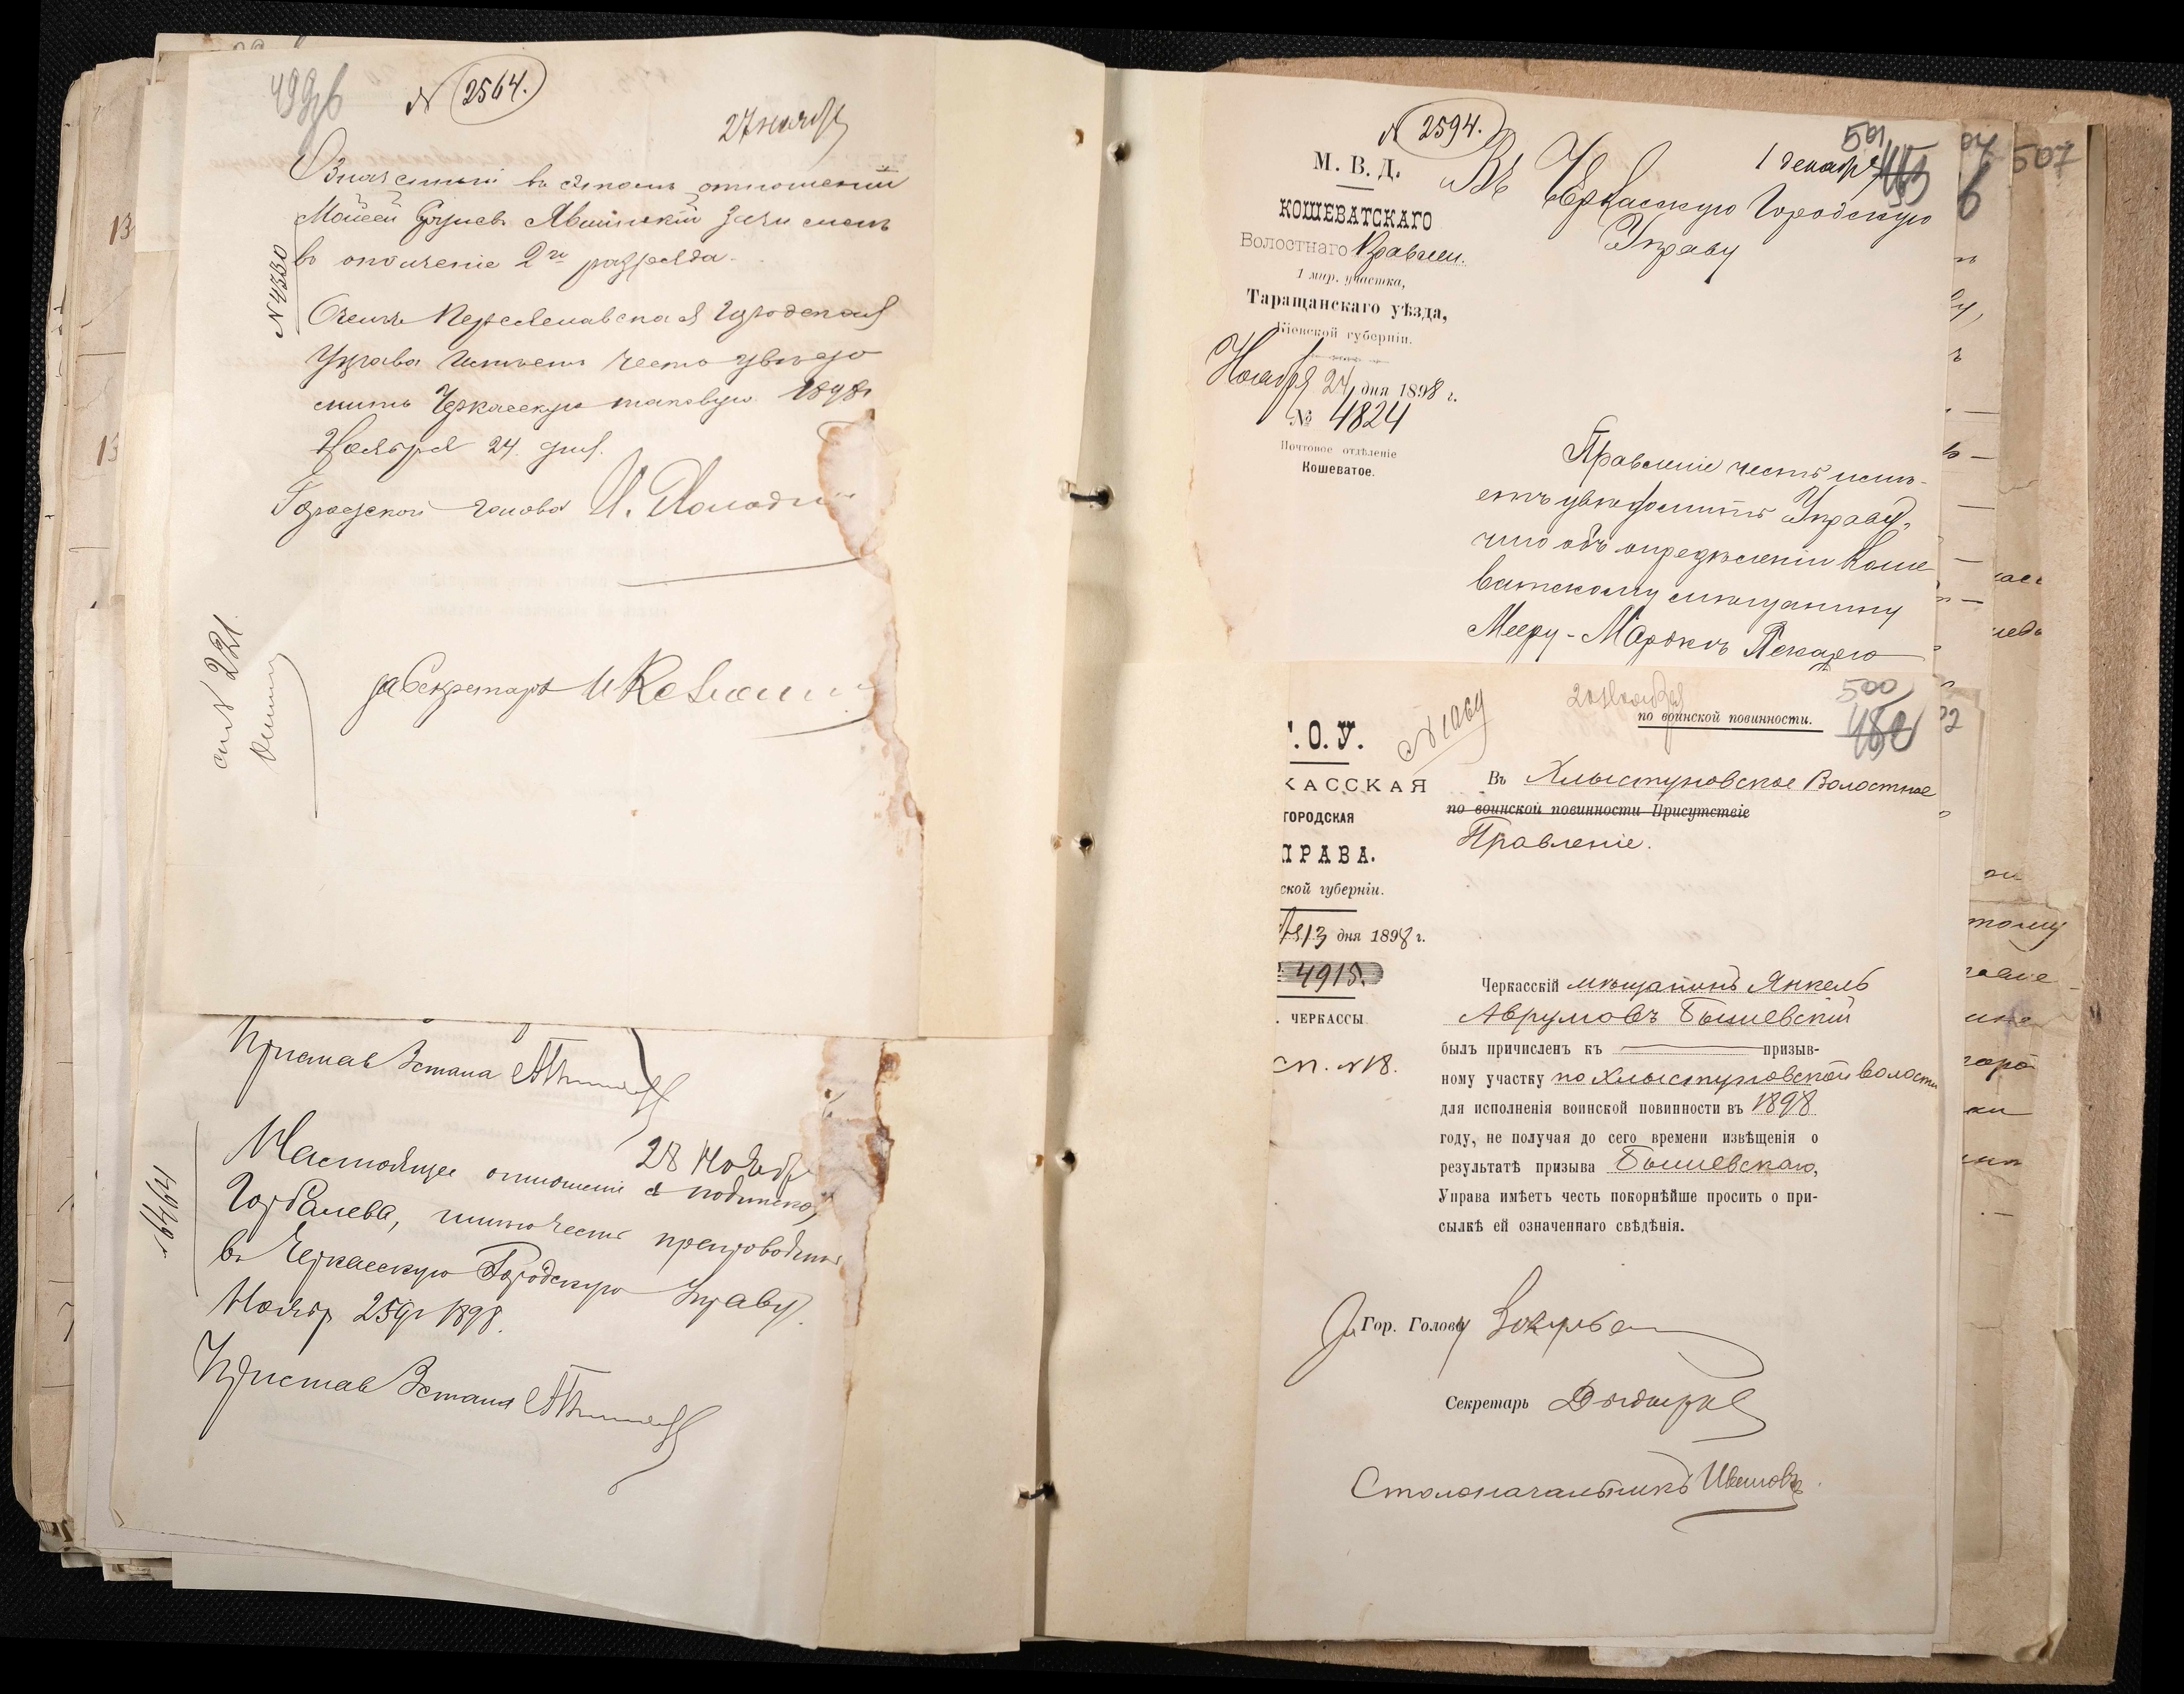 499об
N 2564.
27 ноября
Означенный въ этомъ отношеніи
Мойсей Авшинскій зачисленъ
въ ополченіе 2го разряда.
N 4330
О чемъ Переяславская Городская
Управа имѣетъ честь увѣдо
мить Черкасскую таковую. 1898 г
Ноября 24 дня.
Городской голова И.
за Секретаря И
сп N 221.
Приставъ 3 стана
28 Ноября
Настоящее отношеніе съ подпискою
Горбалева, имѣю честь препроводить
въ Черкасскую Городскую Управу.
Ноября 25 дн 1898.
Приставъ 3 стана
N 2594.
501
1 декабря
М. В. Д.
КОШЕВАТСКАГО
Волостнаго Правлен.
1 мир. участка,
Таращанскаго уѣзда,
Кіевской губерніи.
Ноября 24 дня 1898 г.
№ 4824
Почтовое отдѣленіе
Кошеватое.
Въ Черкасскую Городскую
Управу
Правленіе честь имѣ-
етъ увѣдомить Управу,
что объ опредѣленіи Коше
ватскому мѣщанину
Мееру-Мордко
507
N 1069
по воинской повинности.
500
.О.У.
КАССКАЯ
ГОРОДСКАЯ
ПРАВА.
ской губерніи.
13 дня 1898 г.
4915.
. ЧЕРКАССЫ.
сп. N 18.
Въ Хлыстуновское Волостное
по воинской повинности Присутствіе
Правленіе.
Черкасскій мѣщанинъ Янкель
Аврумовъ Бышевскій
былъ причисленъ къ призыв-
ному участку по Хлыстуновской волости
для исполненія воинской повинности въ 1898
году, не получая до сего времени извѣщенія о
результатѣ призыва Бышевскаго,
Управа имѣетъ честь покорнѣйше просить о при-
сылкѣ ей означеннаго свѣдѣнія.
За Гор. Голову
Секретарь
Столоначальникъ Ивановъ